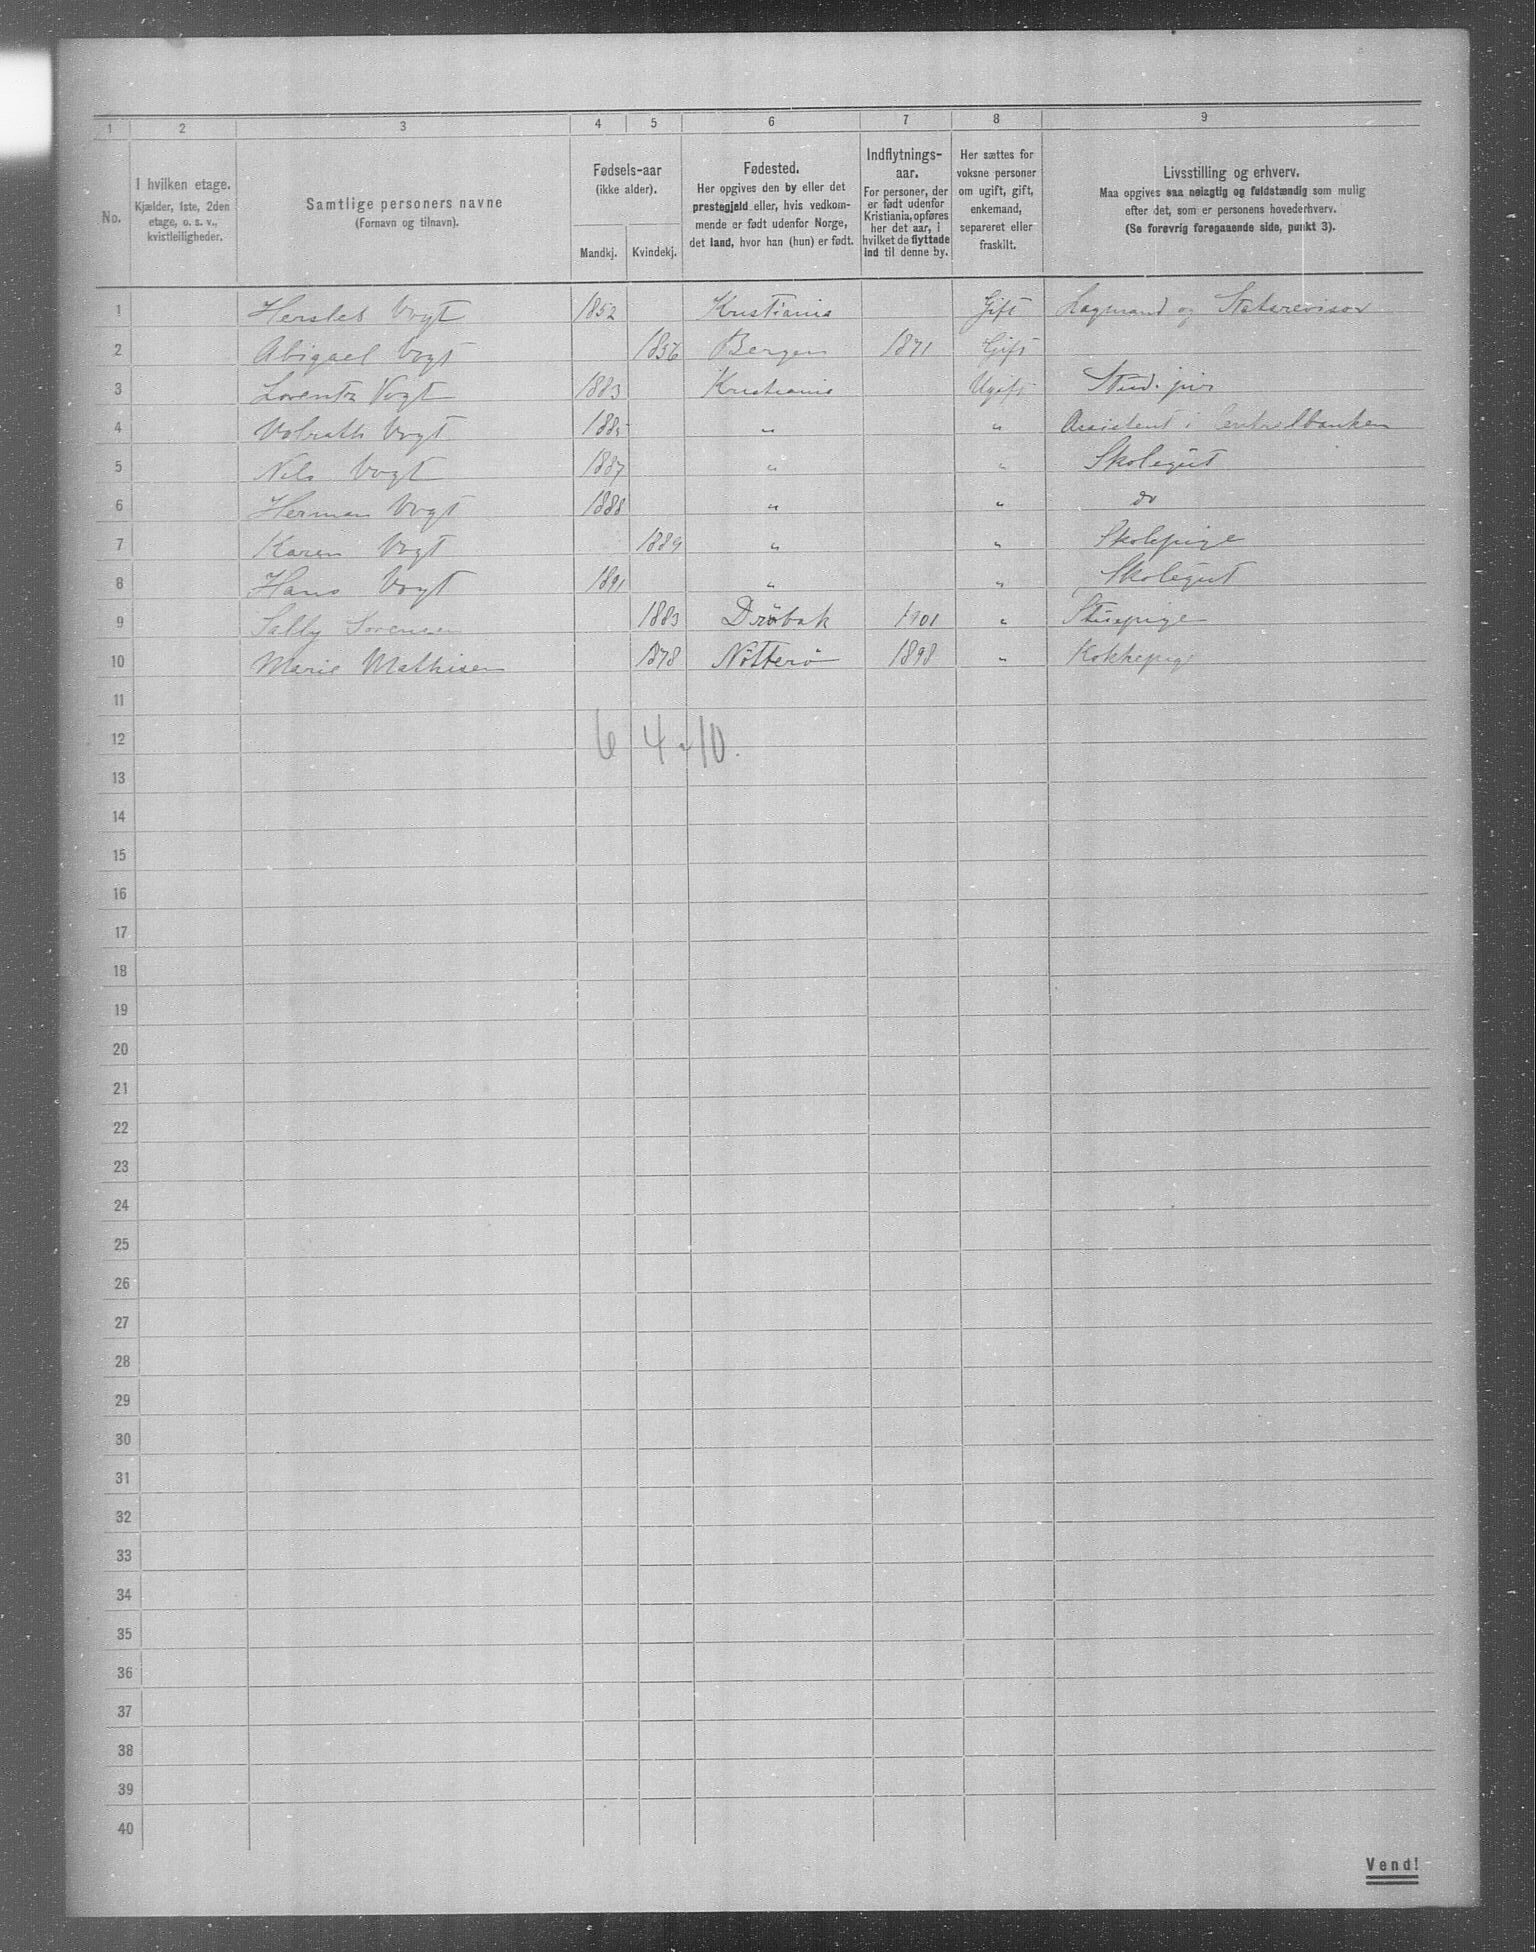 1 2 3 4 5 6 7 8 9
No. I hvilken etage. Kjælder, 1ste, 2den etage, o. s. v., kvistleiligheder.
Samtlige personers navne (Fornavn og tilnavn).
Fødsels-aar (ikke alder). Mandkj. Kvindekj.
Fødested. Her opgives den by eller det prestegjeld eller, hvis vedkommende er født udenfor Norge, det land, hvor han (hun) er født.
Indflytnings-aar. For personer, der er født udenfor Kristiania, opføres her det aar, i hvilket de flyttede ind til denne by.
Her sættes for voksne personer om ugift, gift, enkemand, separeret eller fraskilt.
Livsstilling og erhverv. Maa opgives saa nøiagtig og fuldstændig som mulig efter det, som er personens hovederhverv. (Se forøvrig foregaaende side, punkt 3).
1 Hersleb Vogt 1852 Kristiania Gift Lagmand og Statsrevisor
2 Abigael Vogt 1856 Bergen 1871 Gift
3 Lorentz Vogt 1883 Kristiania Ugift Stud. jur
4 Volrath Vogt 1885 " " Assistent i Centralbanken
5 Nils Vogt 1887 " " Skolegut
6 Herman Vogt 1888 " " do
7 Karen Vogt 1889 " " Skolepige
8 Hans Vogt 1891 " " Skolegut
9 Sally Sorensen 1883 Dröbak 1901 " Stuepige
10 Marie Mathisen 1878 Nötterö 1898 " Kokkepige
11
12 6 4 = 10.
13
14
15
16
17
18
19
20
21
22
23
24
25
26
27
28
29
30
31
32
33
34
35
36
37
38
39
40
Vend!